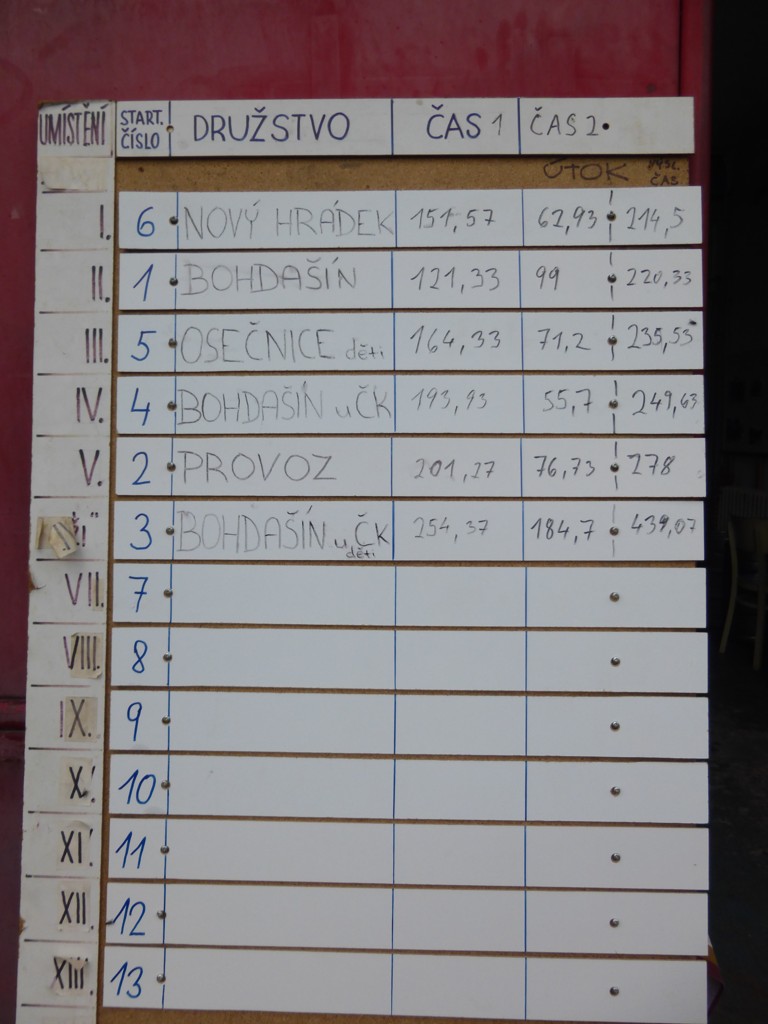 UMÍSTĚNÍ START. ČÍSLO DRUŽSTVO ČAS 1 ČAS 2.
ÚTOK VÝSL. ČAS
I. 6 NOVÝ HRÁDEK 151,57 62,93 214,5
II. 1 BOHDAŠÍN 121,33 99 220,33
III. 5 OSEČNICE děti 164,33 71,2 235,53
IV. 4 BOHDAŠÍN u ČK 193,93 55,7 249,63
V. 2 PROVOZ 201,27 76,73 278
3 BOHDAŠÍN u ČK děti 254,37 184,7 439,07
VII. 7
VIII. 8
IX. 9
X. 10
XI. 11
XII. 12
XIII. 13